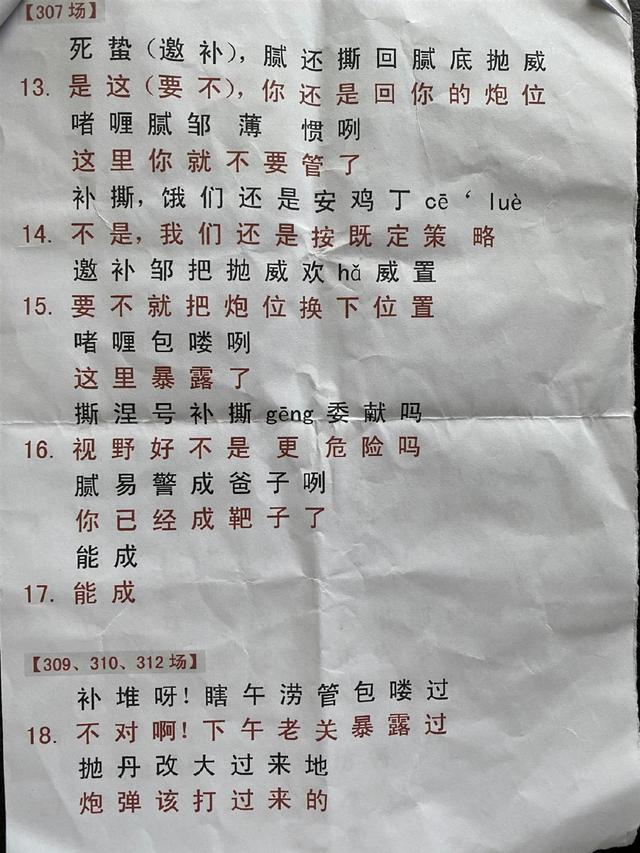 【307场】
死蛰(邀补),腻还撕回腻底抛威
13. 是这(要不),你还是回你的炮位
啫喱腻邹薄 惯咧
这里你就不要管了
补撕,饿们还是安鸡丁cē‘luè
14. 不是,我们还是按既定策 略
邀补邹把抛威欢hǎ威置
15. 要不就把炮位换下位置
啫喱包喽咧
这里暴露了
撕涅号补撕gēng委献吗
16. 视野好不是 更 危险吗
腻易警成爸子咧
你已经成靶子了
能成
17. 能成
【309、310、312场】
补堆呀!瞎午涝管包喽过
18. 不对啊!下午老关暴露过
抛丹改大过来地
炮弹该打过来的